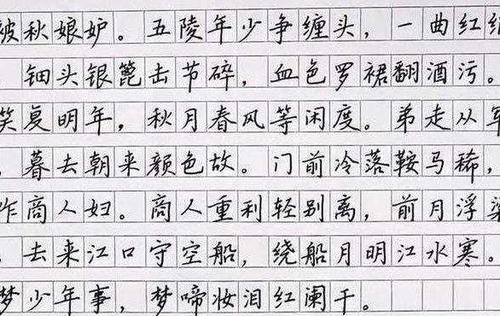 被秋娘妒。五陵年少争缠头，一曲红绡
，钿头银篦击节碎，血色罗裙翻酒污。
笑复明年，秋月春风等闲度。弟走从军
，暮去朝来颜色故。门前冷落鞍马稀，
作商人妇。商人重利轻别离，前月浮梁
，去来江口守空船，绕船月明江水寒。
梦少年事，梦啼妆泪红阑干。